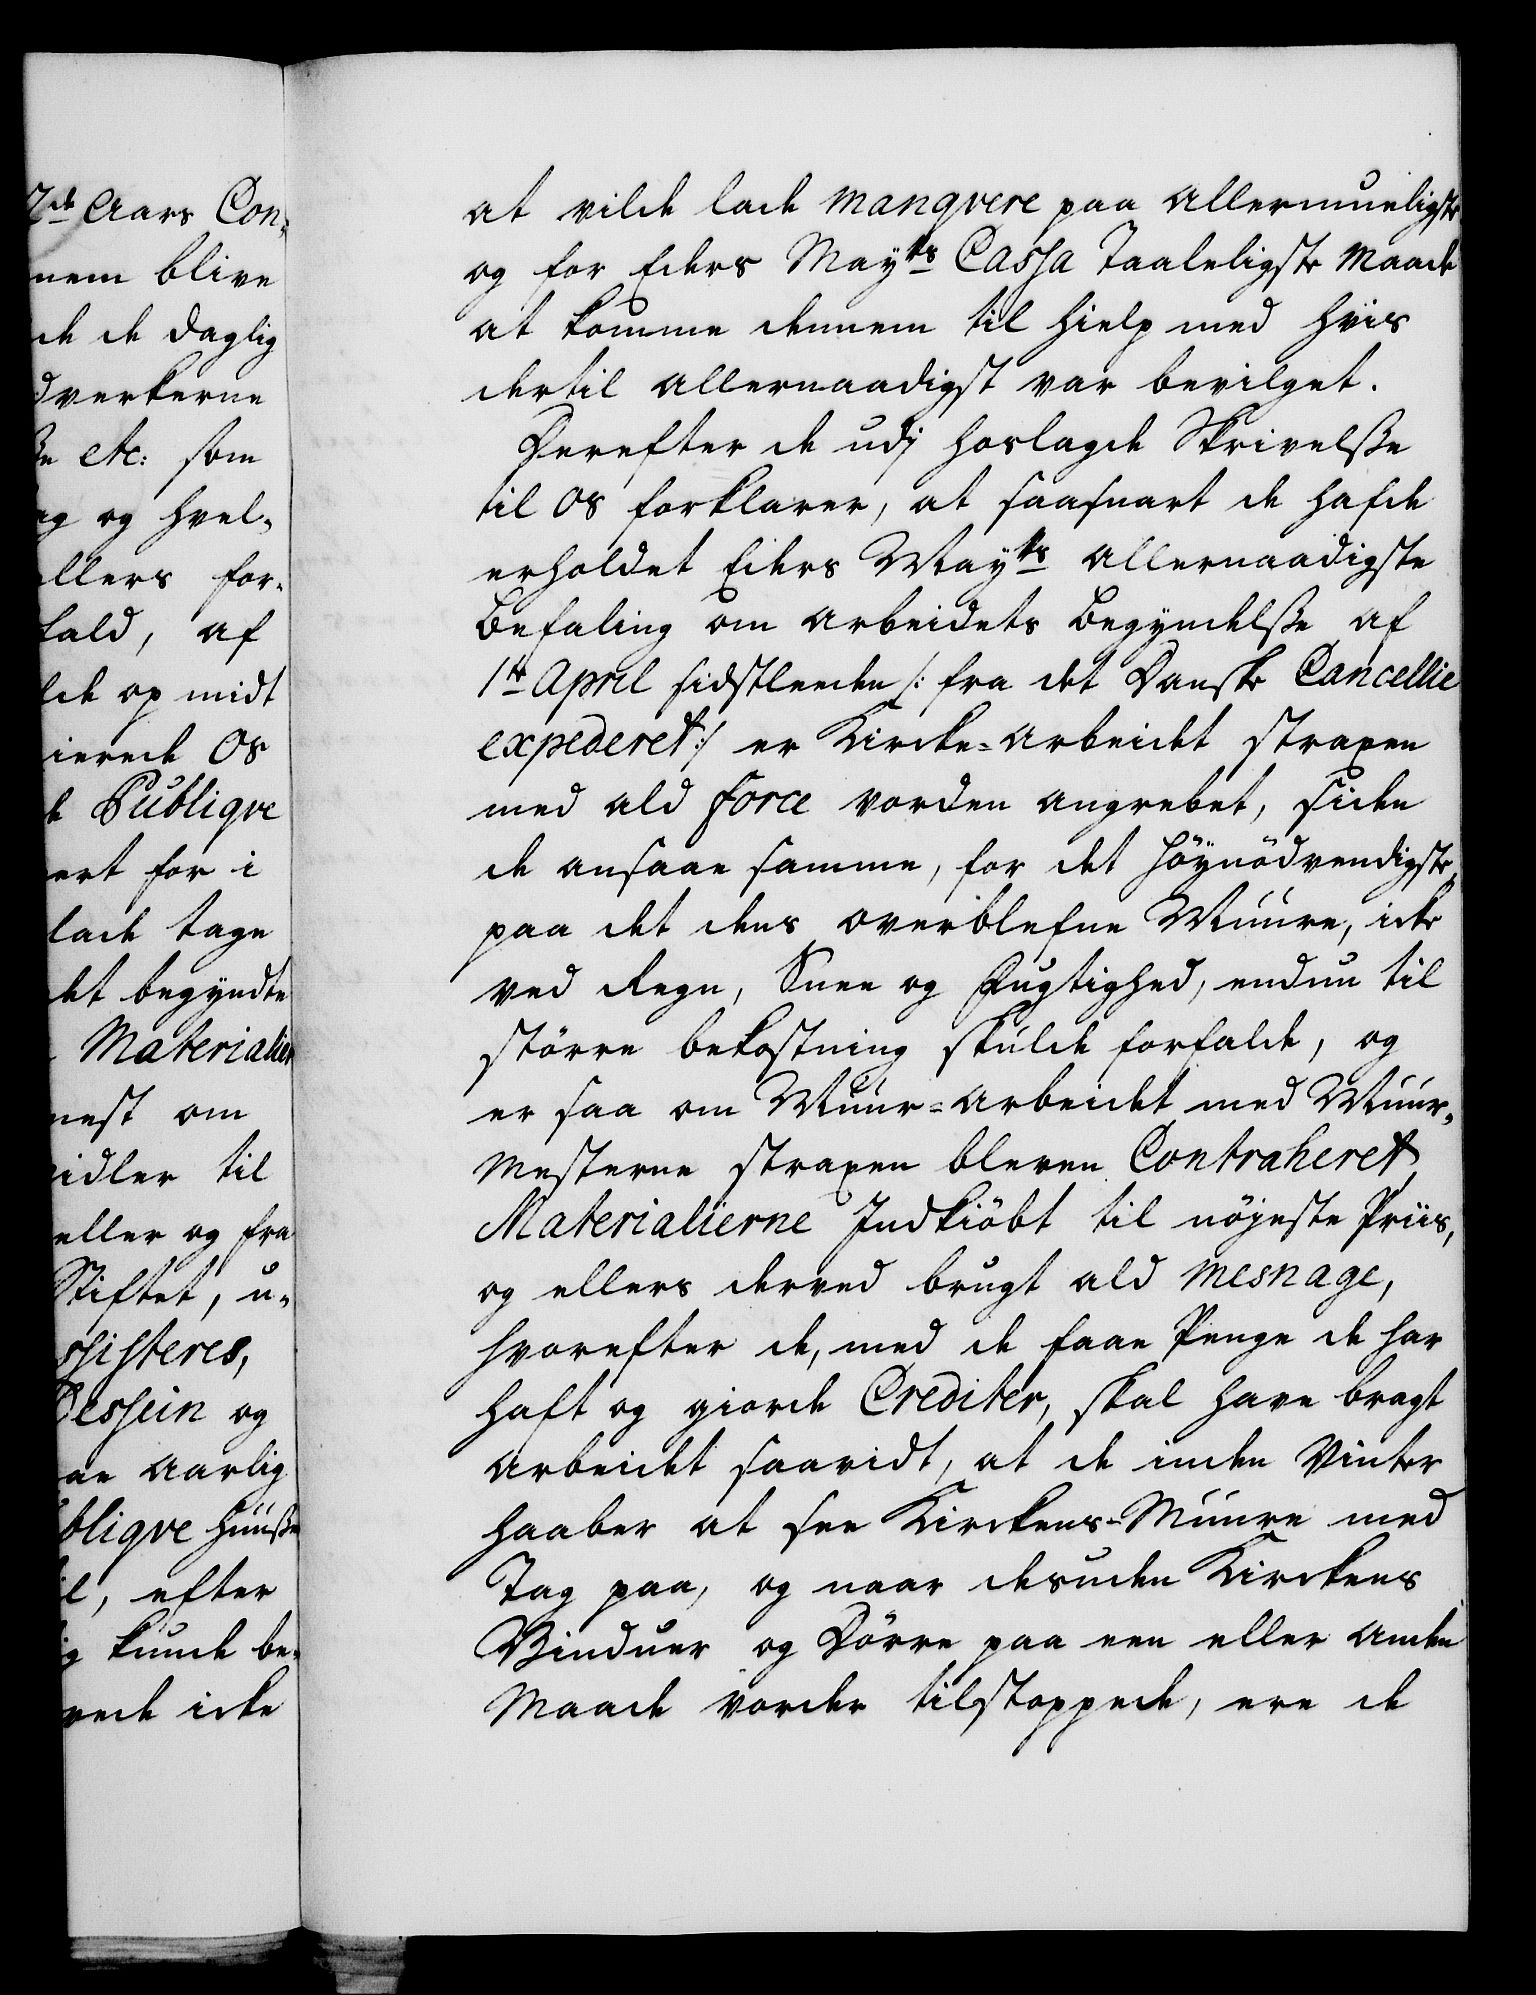 2de Aars Con-
nem blive
de de daglig
dverkerne
ße etc: som
ag og hvel-
ellers for-
kald, af
lde op midt
ierede Os
e Publiqve
ert for i
lade tage
det begyndte
Materialier
nest om
idler til
eller og fra
Stiftet, u-
ssisteres,
Dessein og
an aarlig
bliqve Huuse
il, efter
ig kunde be-
rede icke
at vilde lade manqvere paa allermueligste
og for Eders Mayts Cassa Taaleligste Maade
at komme dennem til Hielp med hvis
dertil allernaadigst var bevilget.
Derefter de udj hoslagde Skrivelße
til Os forklarer, at saasnart de hafde
erholdet Eders Mayts allernaadigste
Befaling om Arbeidets Begyndelße af
1te April sidstleeden /: fra det Danske Cancellie
expederet :/ er Kircke-Arbeidet straxen
med ald Force vorden angrebet, siden
de ansaae samme, for det höynödvendigste,
paa det dens overblefne Muure, icke
ved Regn, Snee og Fugtighed, endnu til
större bekostning skulde forfalde, og
er saa om Muur-Arbeidet med Muur-
Mesterne straxen bleven Contraheret,
Materialierne Indkiöbt til nöjeste Priis,
og ellers derved brugt ald Mesnage,
hvorefter de, med de faae Penge de har
haft og giorde Crediter, skal have bragt
Arbeidet saavidt, at de inden Vinter
haaber at see Kirckens-Muure med
Tag paa, og naar desuden Kirckens
Vinduer og Dörre paa een eller anden
Maade vorder tilstoppede, ere de